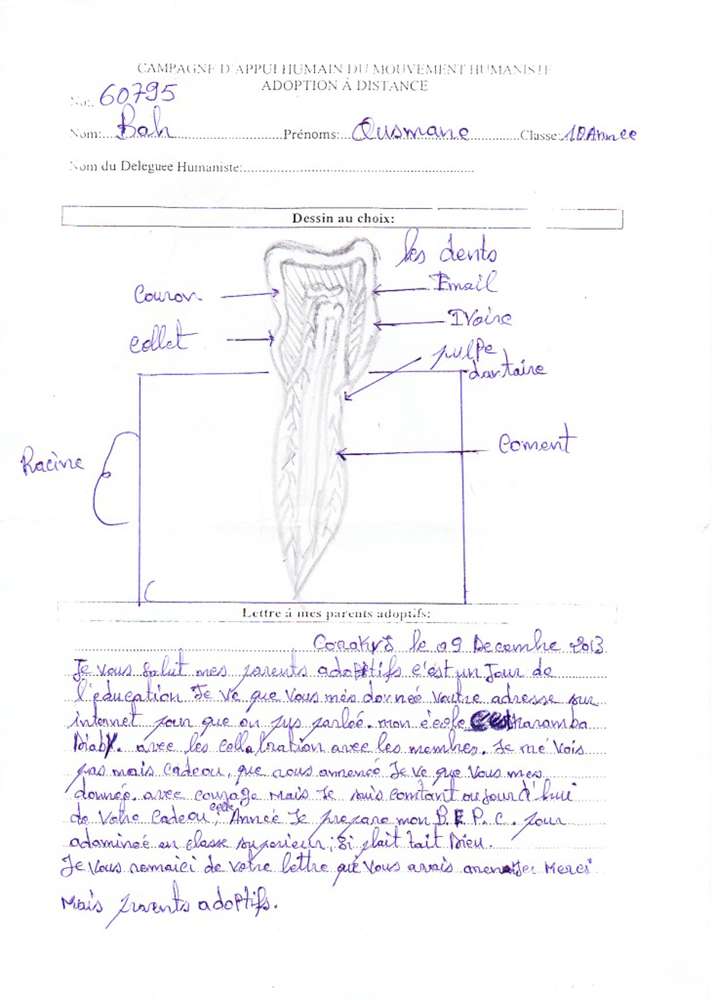 CAMPAGNE D'APPUI HUMAIN DU MOUVEMENT HUMANISTE
ADOPTION À DISTANCE
No:. 60795
Nom: Bah Prénoms: Ousmane Classe: 10 Année
Nom du Deleguee Humaniste:
Dessin au choix:
les dents
Couron
Email
Ivoire
Collet
pulpe
dantaire
Racine
Coment
Lettre á mes parents adoptifs:
le 09 Decembre 2013
Je vous salut mes parents adoptifs c'est un Jour de
l'éducation Je ve que vous mes donneé votre adresse sur
internet pour que on parleé. mon école
avec les collabration avec les membres. Je me vois
pas mais cadeau, que nous Je ve que vous mes
donneé. avec courage mais Je suis content oujourd'hui
de votre cadeau; cette Année Je prepare mon B.E.P.C. pour
en classe superieur; Si plait tait Dieu.
Je vous de votre lettre que vous avais Merci
Mais parents adoptifs.